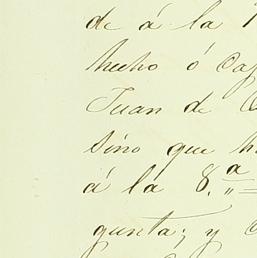 de á la
hecho ó
Juan de
Sino que
á la 8.ª
gunta; y